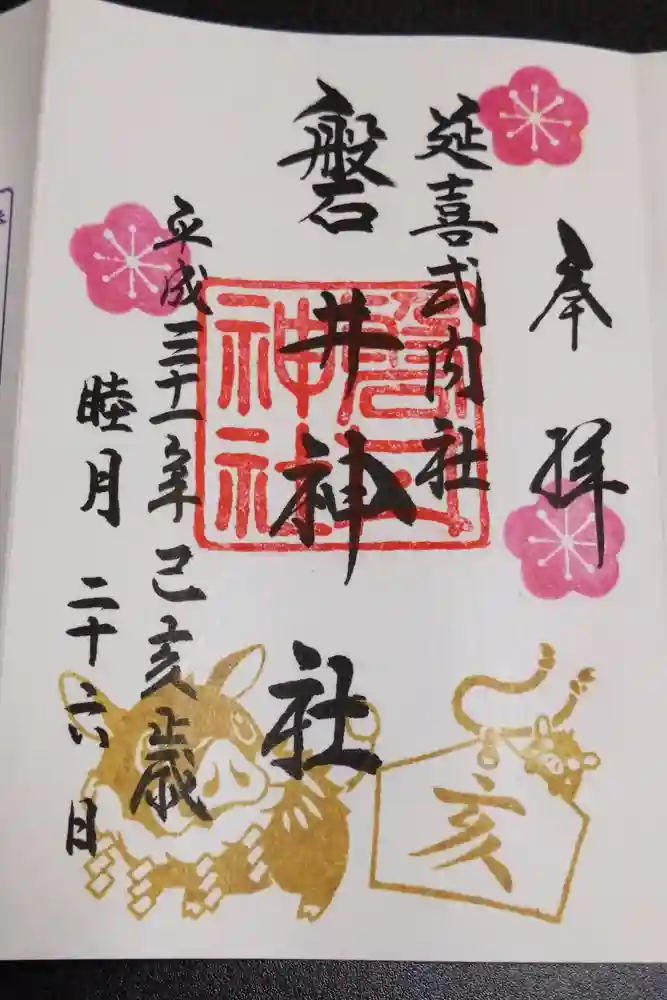 奉拝
延喜式内社
磐井神社
平成三十一年己亥歳
睦月二十六日
磐井神社
亥